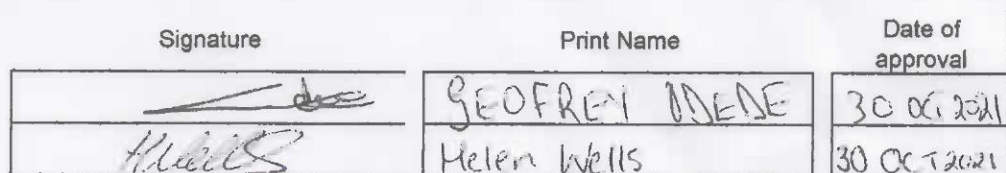 Signature Print Name Date of
approval
GEOFREY 30 OCT 2021
Helen Wells 30 OCT 2021